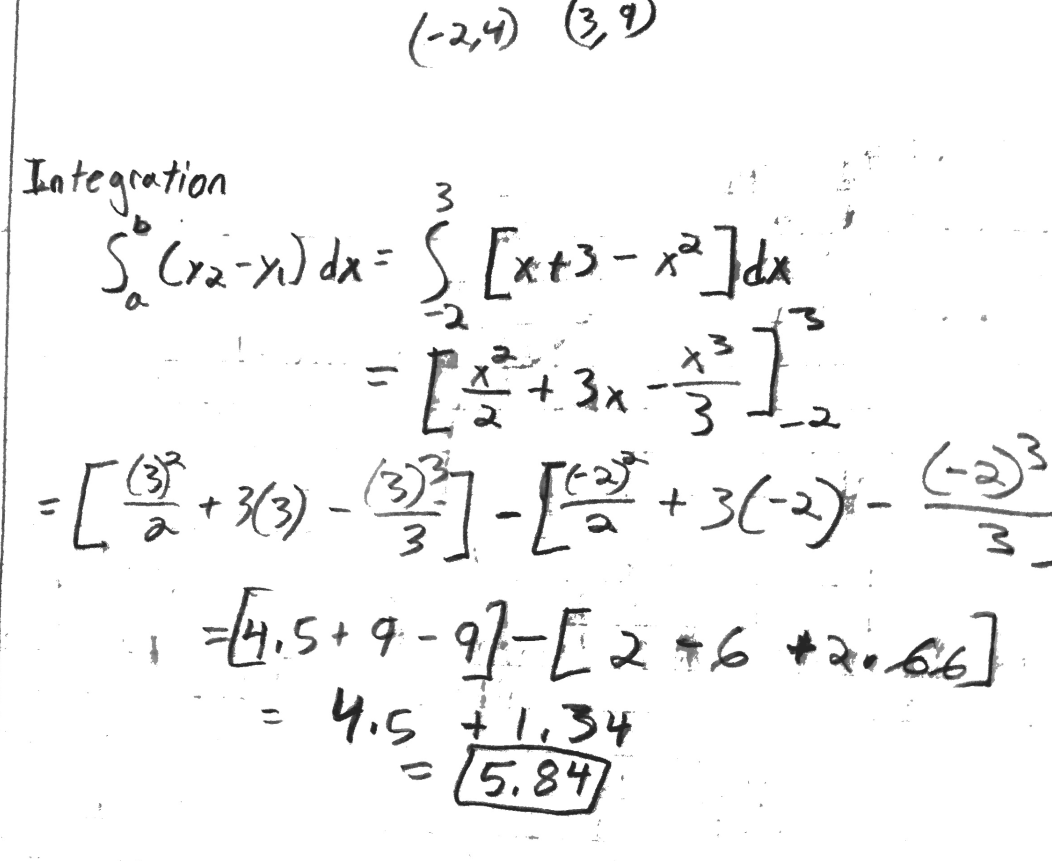 (-2,4) (3,9)
Integration
∫_a^b (y₂-y₁) dx = ∫_{-2}^{3} [x+3-x²]dx
= [x²/2 + 3x - x³/3]_{-2}^{3}
= [(3)²/2 + 3(3) - (3)³/3] - [(-2)²/2 + 3(-2) - (-2)³/3
= [4.5 + 9 - 9] - [2 - 6 + 2.66]
= 4.5 + 1.34
= 5.84